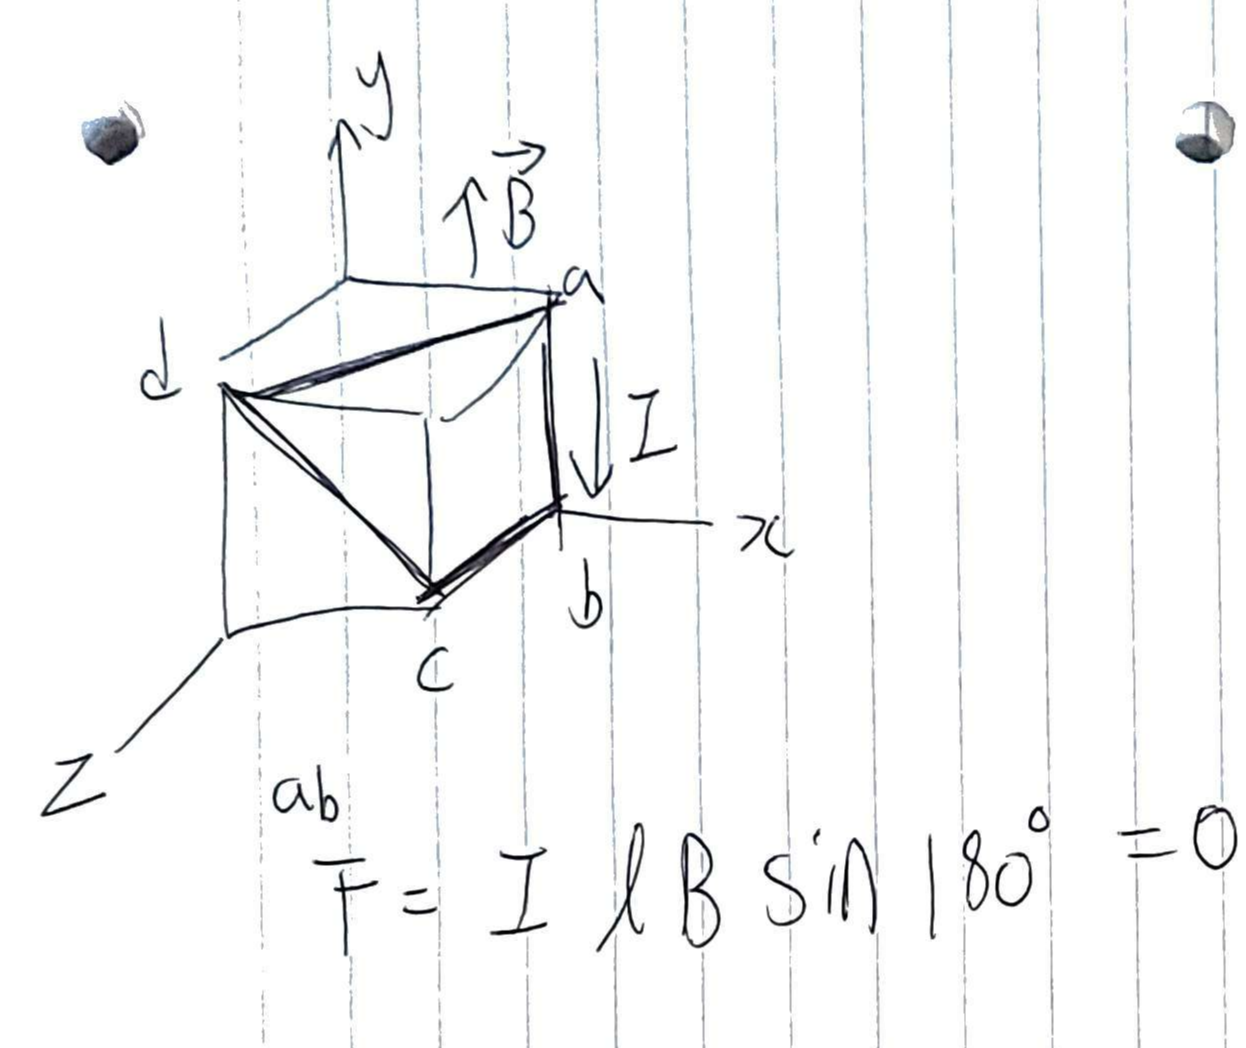 y
→
↑ B
a
d
↓ I
x
b
c
Z
ab
F = I l B sin 180° = 0